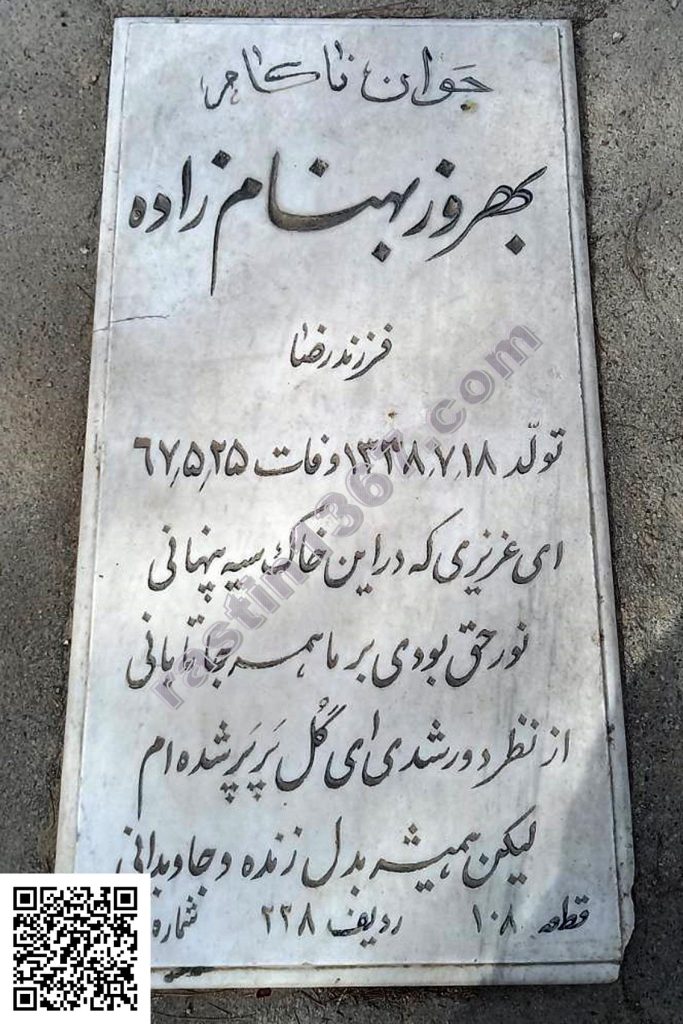 جوان ناکام
بهروز بهنام زاده
فرزند رضا
تولّد ۱۳۴۸٫۷٫۱۸ وفات ۶۷٫۵٫۲۵
ای عزیزی که در این خاک سیه پنهانی
نور حق بودی بر ما همه جا تابانی
از نظر دور شدی ای گُل پَرپَر شده ام
لیکن همیشه بدل زنده و جاویدانی
قطعه ۱۰۸ ردیف ۲۲۸ شماره
rastin1367.com